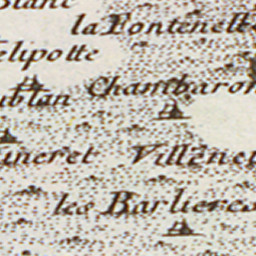 Blanc
la Fontenelle
elipotte
Chambaron
ublan
uneret Villeneu
les Barliere